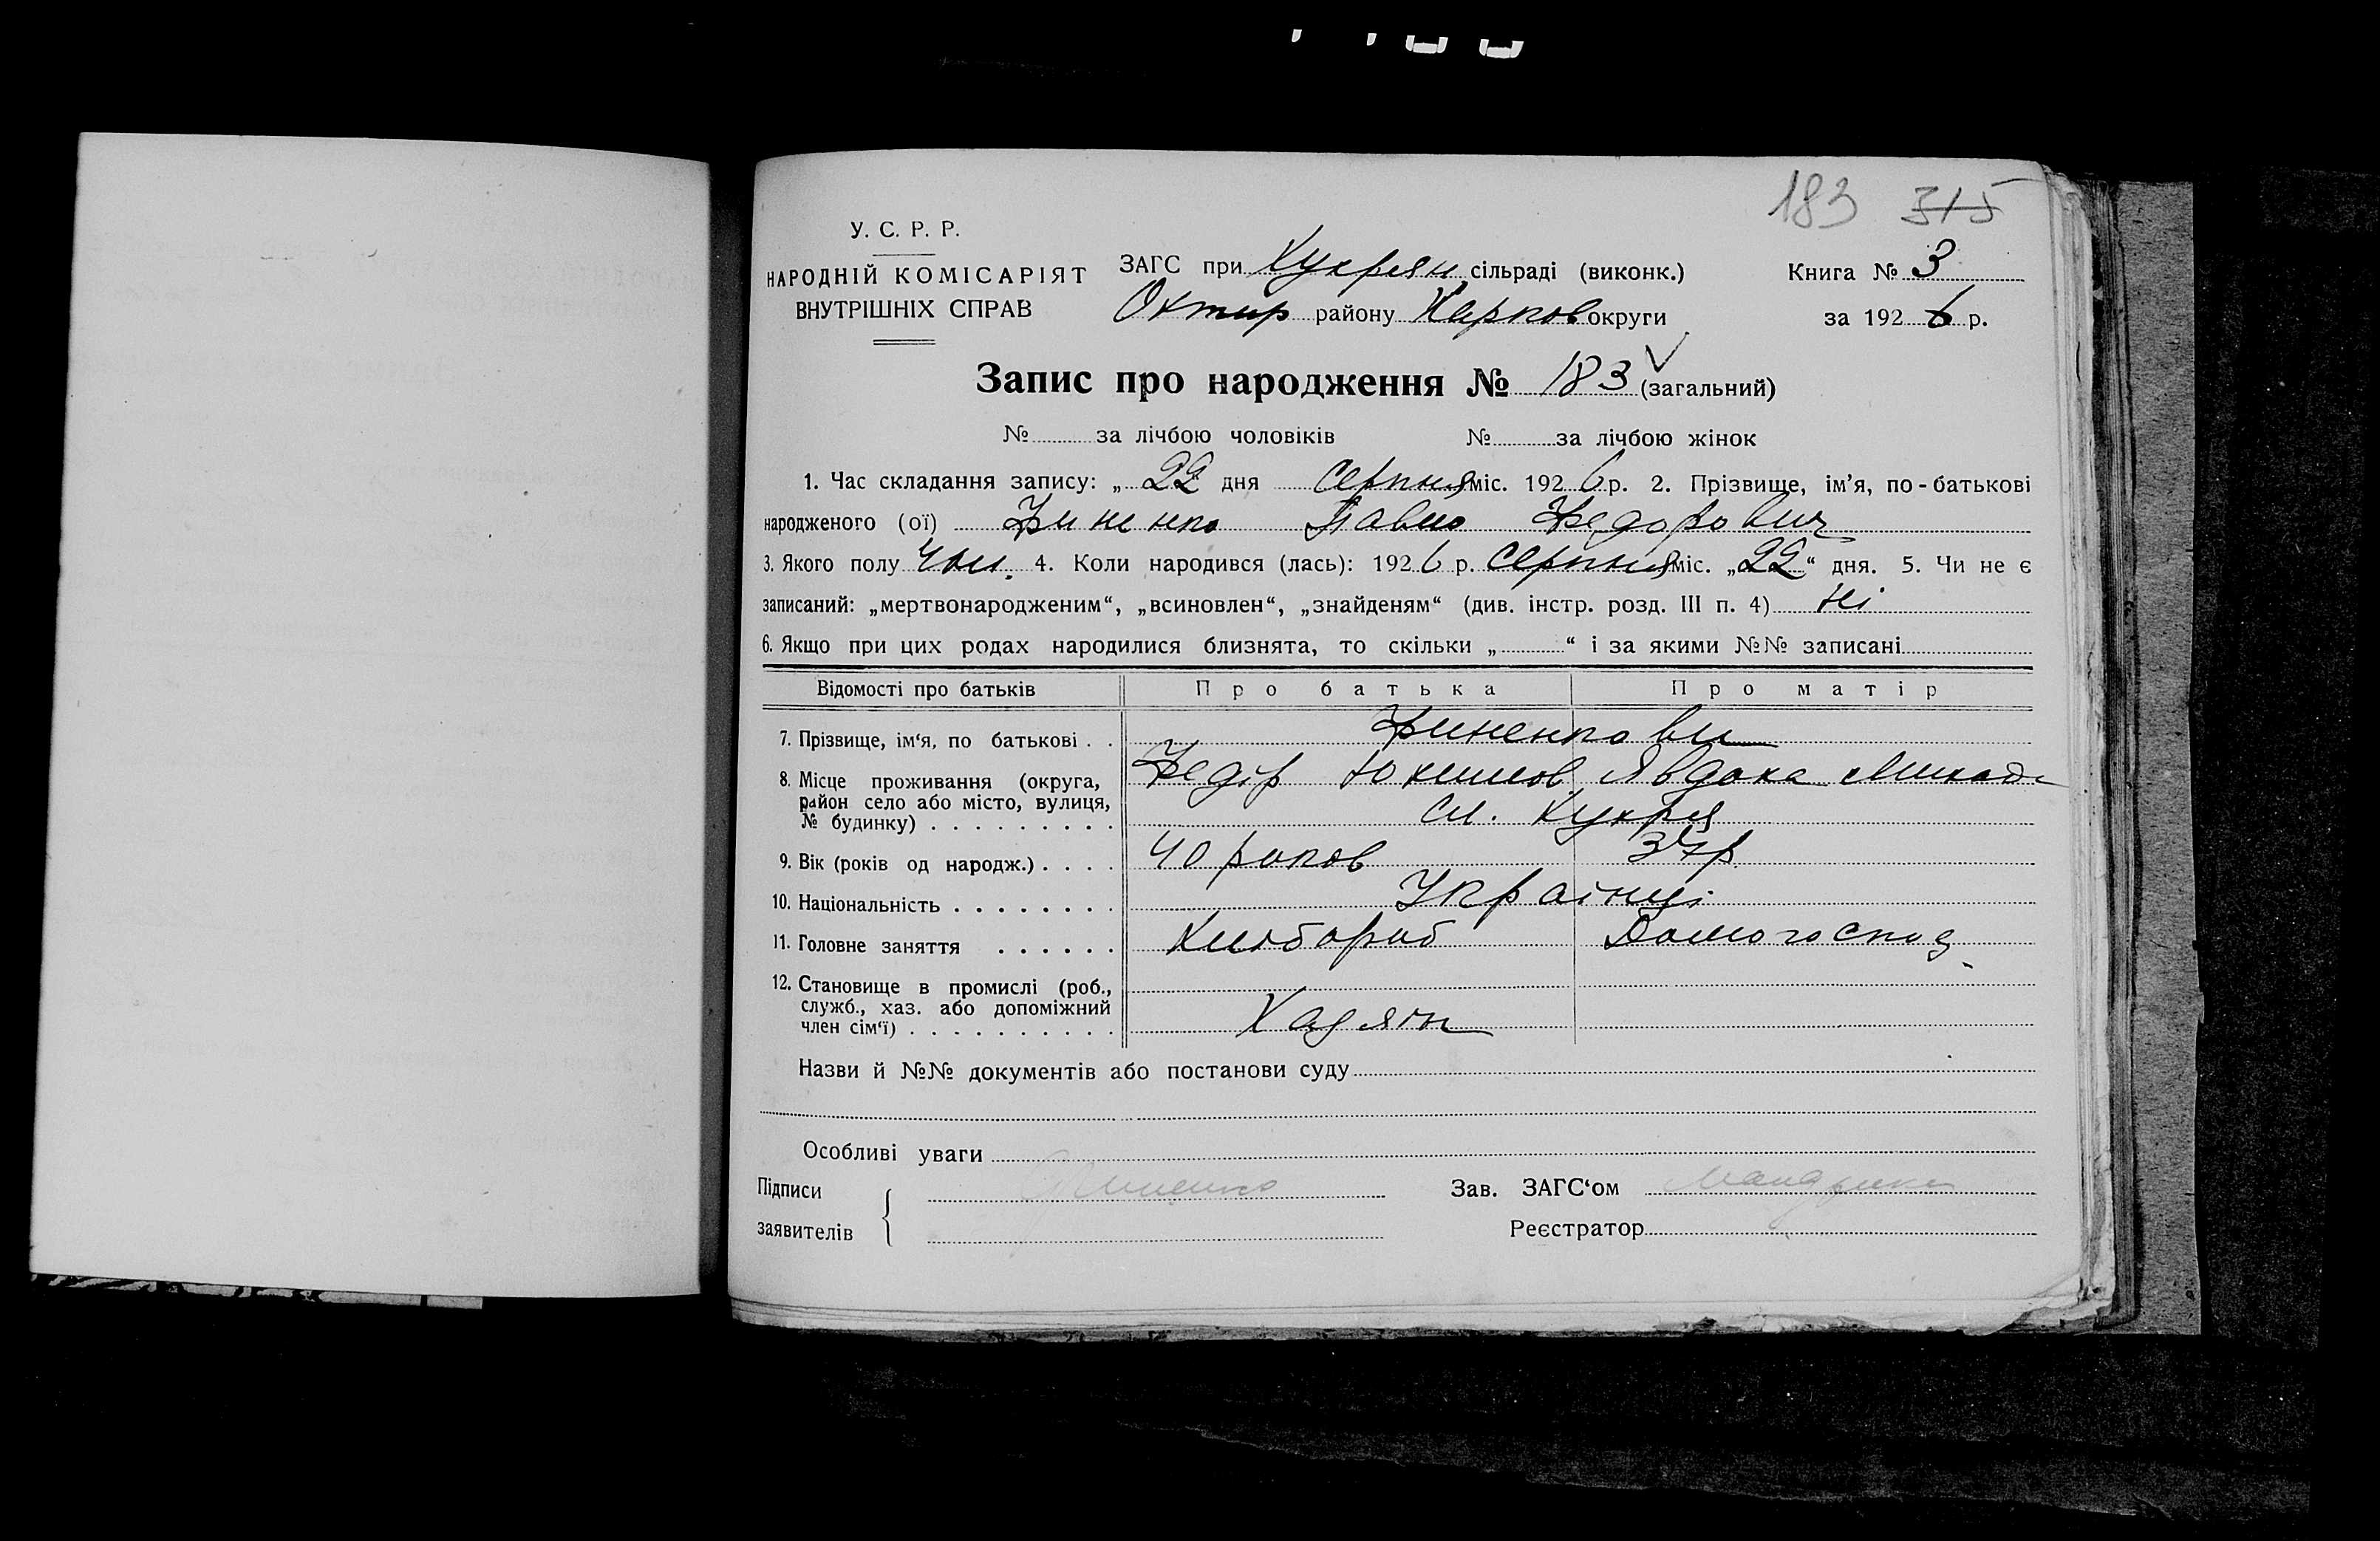 183 315
У. С. Р. Р.
НАРОДНІЙ КОМІСАРІЯТ
ВНУТРІШНІХ СПРАВ
ЗАГС при Кукреян сільраді (виконк.)
Охтир району Харков округи
Книга № 3
за 192 6 р.
Запис про народження № 183 (загальний)
№ за лічбою чоловіків № за лічбою жінок
1. Час складання запису: „ 22 дня серпня міс. 192 6 р. 2. Прізвище, ім'я, по-батькові
народженого (ої) Фененко Павло Федорович
3. Якого полу чол. 4. Коли народився (лась): 192 6 р. серпня міс. „22“ дня. 5. Чи не є
записаний: „мертвонародженим“, „всиновлен“, „знайденям“ (див. інстр. розд. III п. 4) ні
6. Якщо при цих родах народилися близнята, то скільки „ “ і за якими №№ записані
Відомості про батьків Про батька Про матір
7. Прізвище, ім'я, по батькові . .
8. Місце проживання (округа, район село або місто, вулиця, № будинку) . . . . . . . . . Федір Явдоха
сл. Кукрея
9. Вік (років од народж.) . . . . 40 роков
10. Національність . . . . . . . . Українці
11. Головне заняття . . . . . . Хлібороб Домогоспод
12. Становище в промислі (роб.,
служб., хаз. або допоміжний
член сім'ї) . . . . . . . . . . Хазяін
Назви й №№ документів або постанови суду
Особливі уваги
Підписи
заявителів
Зав. ЗАГС'ом
Реєстратор